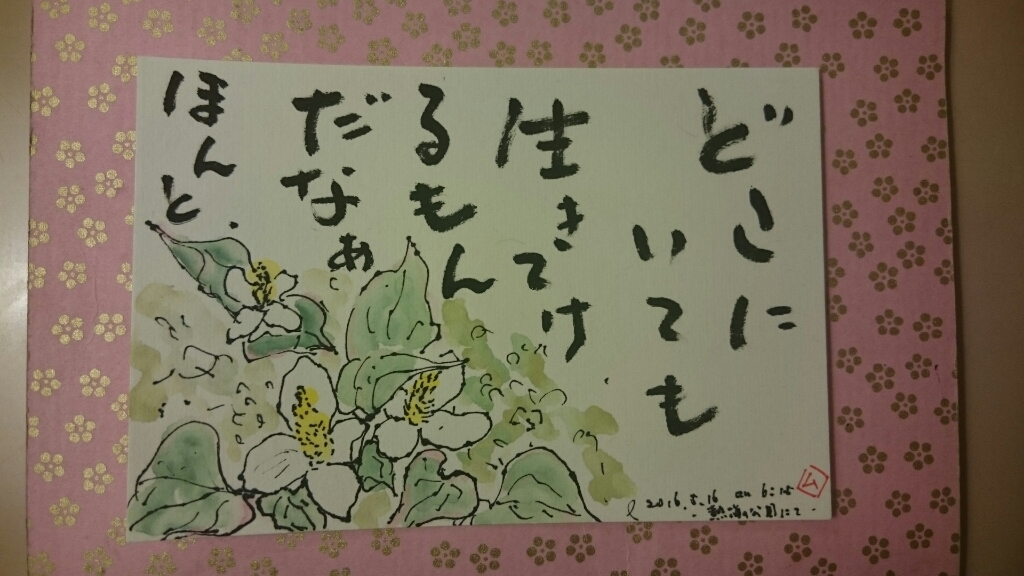 どこに
いても
生きてけ
るもん
だなぁ
ほんと.
2016.5.16 am 6:15
熱海公園にて
ム